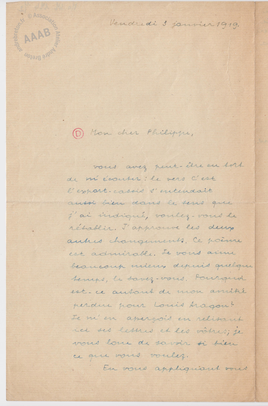 AAAB
Vendredi 3 janvier 1919.
Mon cher Philippe,
vous avez peut-être eu tort
de m'écouter : le vers C'est
aussi bien dans le sens que
j'ai indiqué, voulez-vous le
rétablir. J'approuve les deux
autres changements. Ce poème
est admirable. Je vous aime
beaucoup mieux depuis quelque
temps, le savez-vous. Pourquoi
est-ce autant de mon amitié
perdue pour Louis Aragon ?
Je m'en aperçois en relisant
ses lettres et les vôtres ; je
vous loue de savoir si bien
ce que vous voulez.
En vous appliquant vous